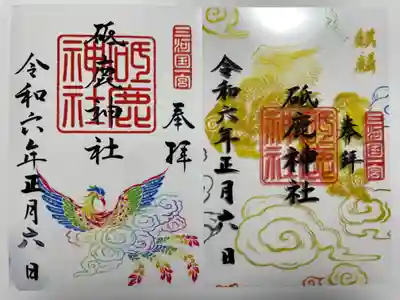 三河国一宮
奉拝
砥鹿神社
砥鹿神社
令和六年正月六日
麒麟
三河国一宮
奉拜
砥鹿神社
砥鹿神社
令和六年正月六日